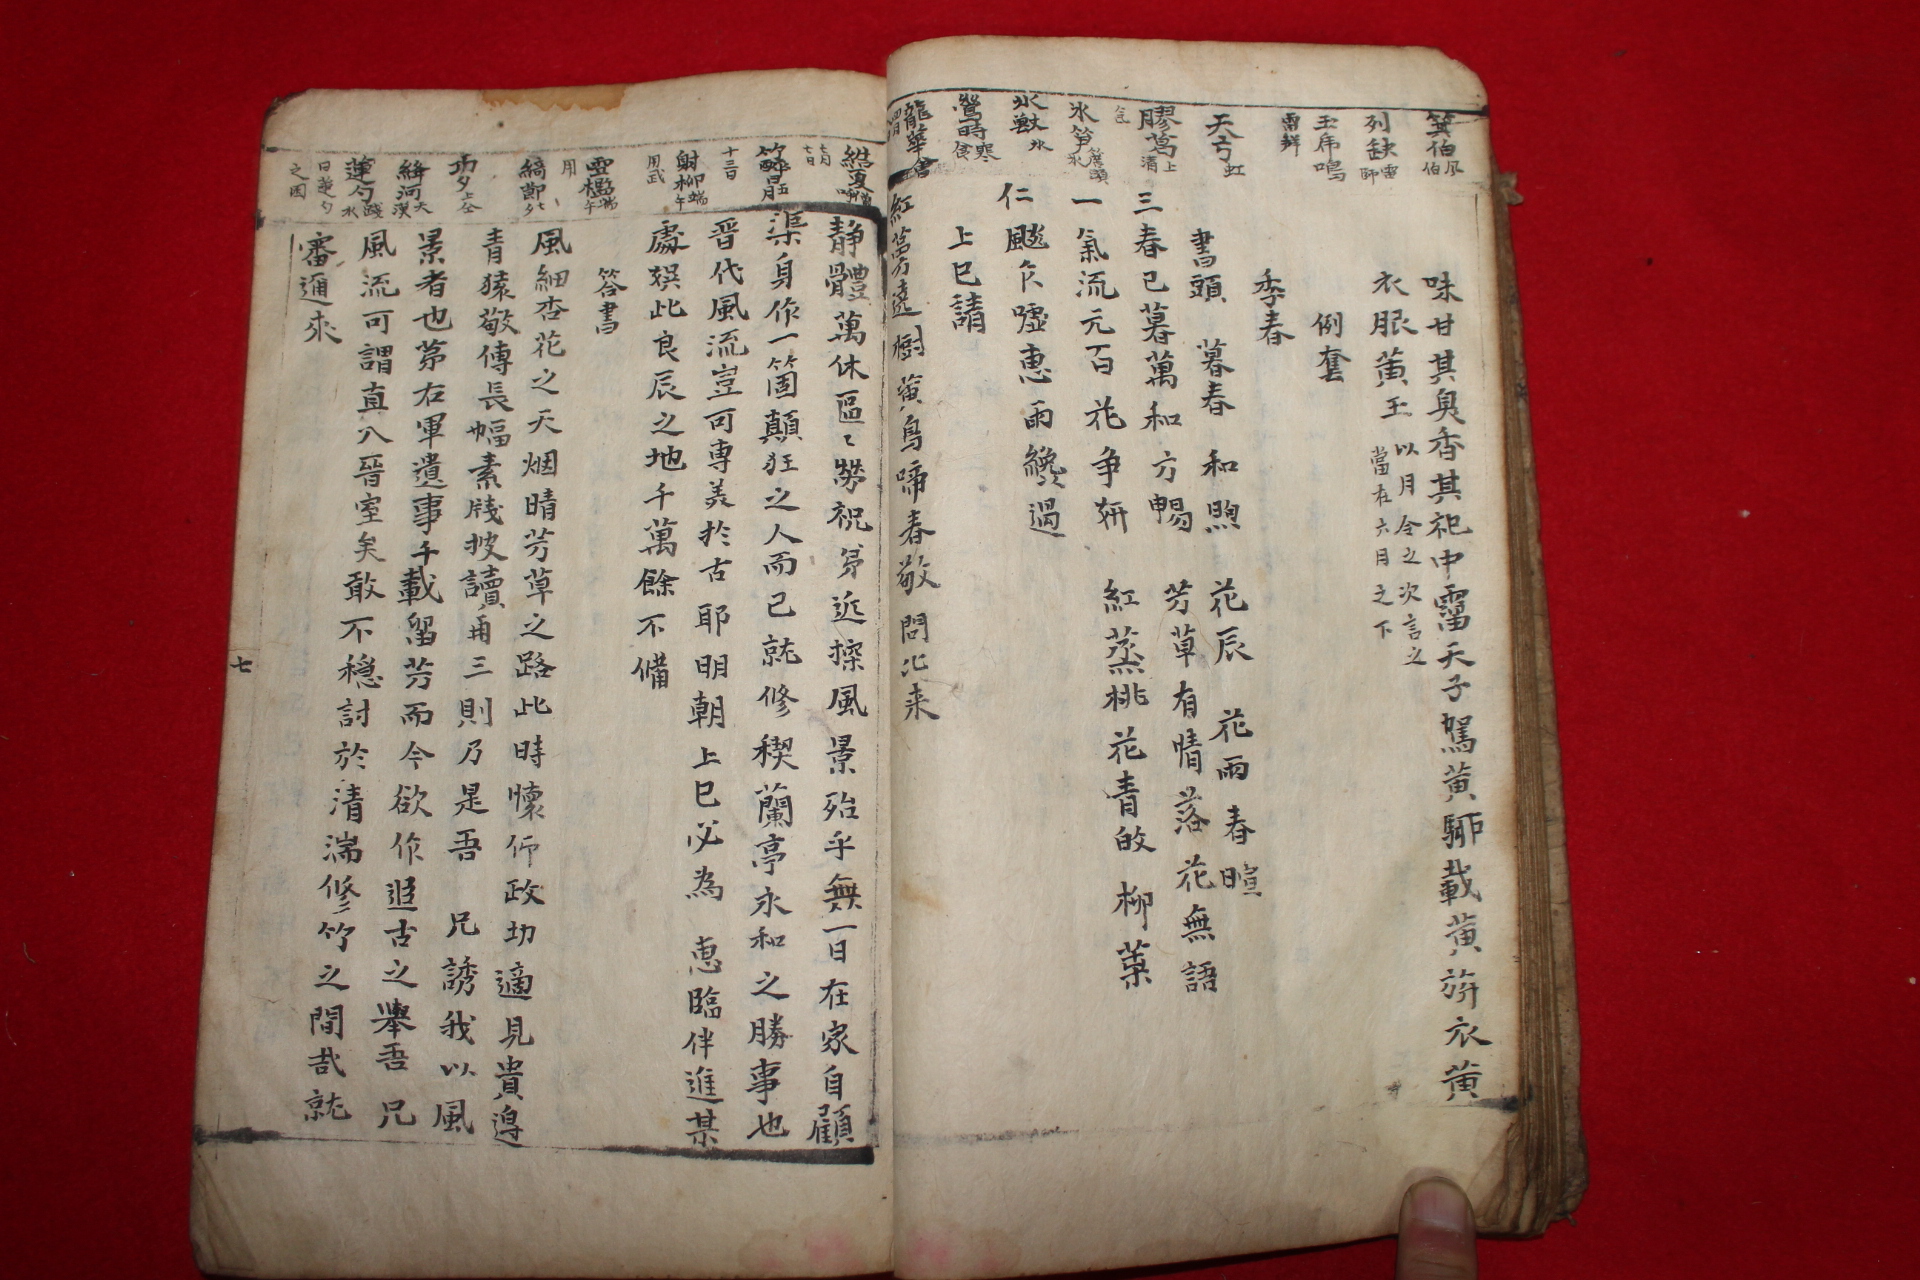 箕伯風伯
列缺雷師
玉虎鳴
雷辥
天弓虹
膠葛上清
氣
氷笋簷頭氷
鶯時寒食
龍華會
味甘其臭香其祀中霤天子駕黃騮載黃旂衣黃
衣服黃玉以月令之次言之當在六月之下
例套
季春
書頭 暮春 和煦 花辰 花雨春暄
三春已暮萬和方暢 芳草有情落花無語
一氣流元百花爭姸 紅蒸桃花靑皎柳葉
仁颸乍噓惠雨纔過
上巳請
紅萼遶樹黃鳥啼春敬問比來
結夏
七月七日
竹醉日五月
十三日
射柳端午
用武
靈檻端午
用
綺節七夕
功夕上仝
絳河天漢
蓮勺
日蓮勺
之困
靜體萬休區〻勞祝弟近攬風景殆乎無一日在家自顧
渠身作一箇顚狂之人而已就修稧蘭亭永和之勝事也
晋代風流豈可專美於古耶明朝上巳必爲 惠臨伴進某
處娛此良辰之地千萬餘不備
答書
風細杏花之天烟晴芳草之路此時懷仰政切適見貴
靑猿敬傳長幅素牋披讀再三則乃是吾 兄誘我以風
景者也弟右軍遺事千載留芳而今欲作追古之擧吾兄
風流可謂直入晋室矣敢不穩討於淸湍修竹之間哉就
審邇來
七